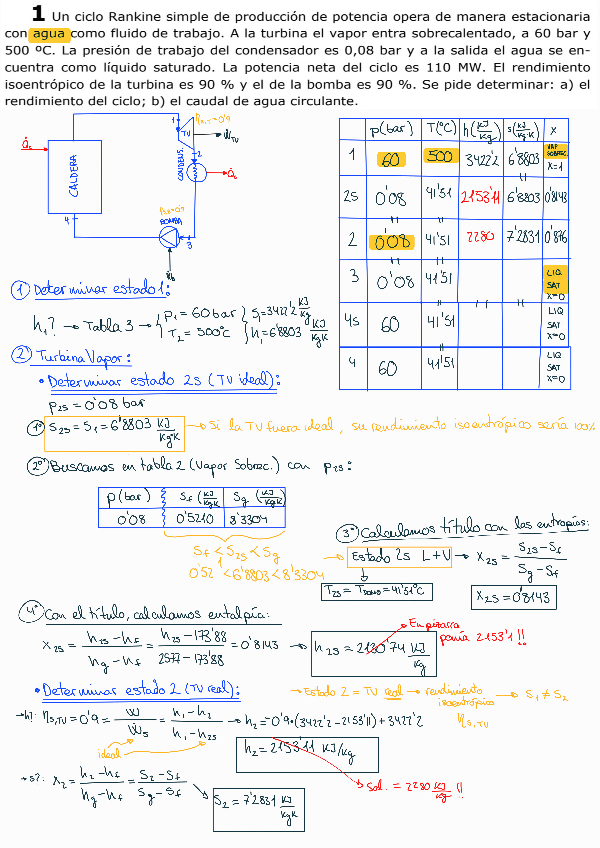 1 Un ciclo Rankine simple de producción de potencia opera de manera estacionaria
con agua como fluido de trabajo. A la turbina el vapor entra sobrecalentado, a 60 bar y
500 ºC. La presión de trabajo del condensador es 0,08 bar y a la salida el agua se en-
cuentra como líquido saturado. La potencia neta del ciclo es 110 MW. El rendimiento
isoentrópico de la turbina es 90 % y el de la bomba es 90 %. Se pide determinar: a) el
rendimiento del ciclo; b) el caudal de agua circulante.
ηs,T=0'9
1
TV
ẆTV
Q̇s
CALDERA
2
CONDENS.
Q̇o
BOMBA
4
3
Ẇb
p(bar) T(ºC) h(KJ/Kg) s(KJ/Kg·K) x
1 60 500 3422'2 6'8803 VAP SOBREC. x=1
2s 0'08 41'51 2153'11 6'8803 0'8143
2 0'08 41'51 2280 7'2831 0'876
3 0'08 41'51 LIQ SAT x=0
4s 60 41'51 LIQ SAT x=0
4 60 41'51 LIQ SAT x=0
① Determinar estado 1:
h₁? → Tabla 3 → { P₁ = 60 bar T₂ = 500ºC } S₁=3422'2 KJ/Kg h₁=6'8803 KJ/KgK
② Turbina Vapor:
• Determinar estado 2s (TV ideal):
P2s = 0'08 bar
1º S2s = S₁ = 6'8803 KJ/Kg·K → Si la TV fuera ideal, su rendimiento isoentrópico sería 100%
2º Buscamos en tabla 2 (Vapor Sobrec.) con P2s:
p(bar) Sf (KJ/KgK) Sg (KJ/KgK)
0'08 0'5210 8'3304
Sf < S2s < Sg
0'52 < 6'8803 < 8'3304
3º Calculamos título con las entropías:
Estado 2s L+V → X2s = (S2s-Sf)/(Sg-Sf)
T2s = = 41'51ºC
X2s = 0'8143
4º Con el título, calculamos entalpía:
X2s = (h2s-hf)/(hg-hf) = (h2s-173'88)/(2577-173'88) = 0'8143 → h2s = 2130'74 KJ/Kg
En pizarra
ponía 2153'1 !!
• Determinar estado 2 (TV real):
→ Estado 2 = TV real → rendimiento isoentrópico ηs,TV → S₁ ≠ S₂
→ h?: ηs,TV = 0'9 = Ẇ/Ẇs = (h₁-h₂)/(h₁-h2s) → h₂ = -0'9·(3422'2-2153'11)+3422'2
ideal
h₂ = 2153'11 KJ/kg
Sol. = 2280 KJ/Kg !!
→ s?: X₂ = (h₂-hf)/(hg-hf) = (S₂-Sf)/(Sg-Sf) → S₂ = 7'2831 KJ/KgK